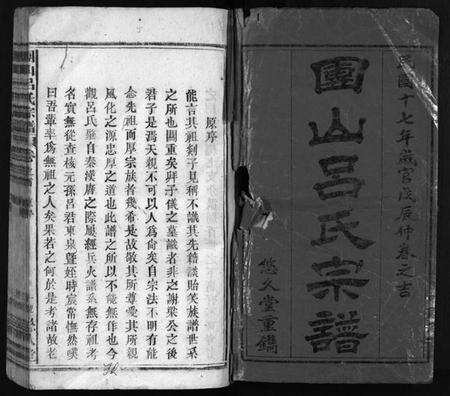 民國十七年歲宮次辰仲春之吉
團山呂氏宗譜
悠久堂重鐫
原序
能言其祖剡子見稱不識其先籍談貽笑族譜世系
之所也關重矣與子儀之墓識者非之謝梁公之後
君子是焉天親不可以人爲尚矣自宗法不明有能
念先祖而厚宗族者幾希是故敬其所尊愛其所親
風化之源忠厚之道也此譜之所以不能無作也今
觀呂氏雖自秦漢唐之際屢經兵火譜系無存祖考
名實無從查核元孫呂君東泉暨姪時宸常慨然嘆
曰吾輩率爲無祖之人矣果若之何於是考諸故老